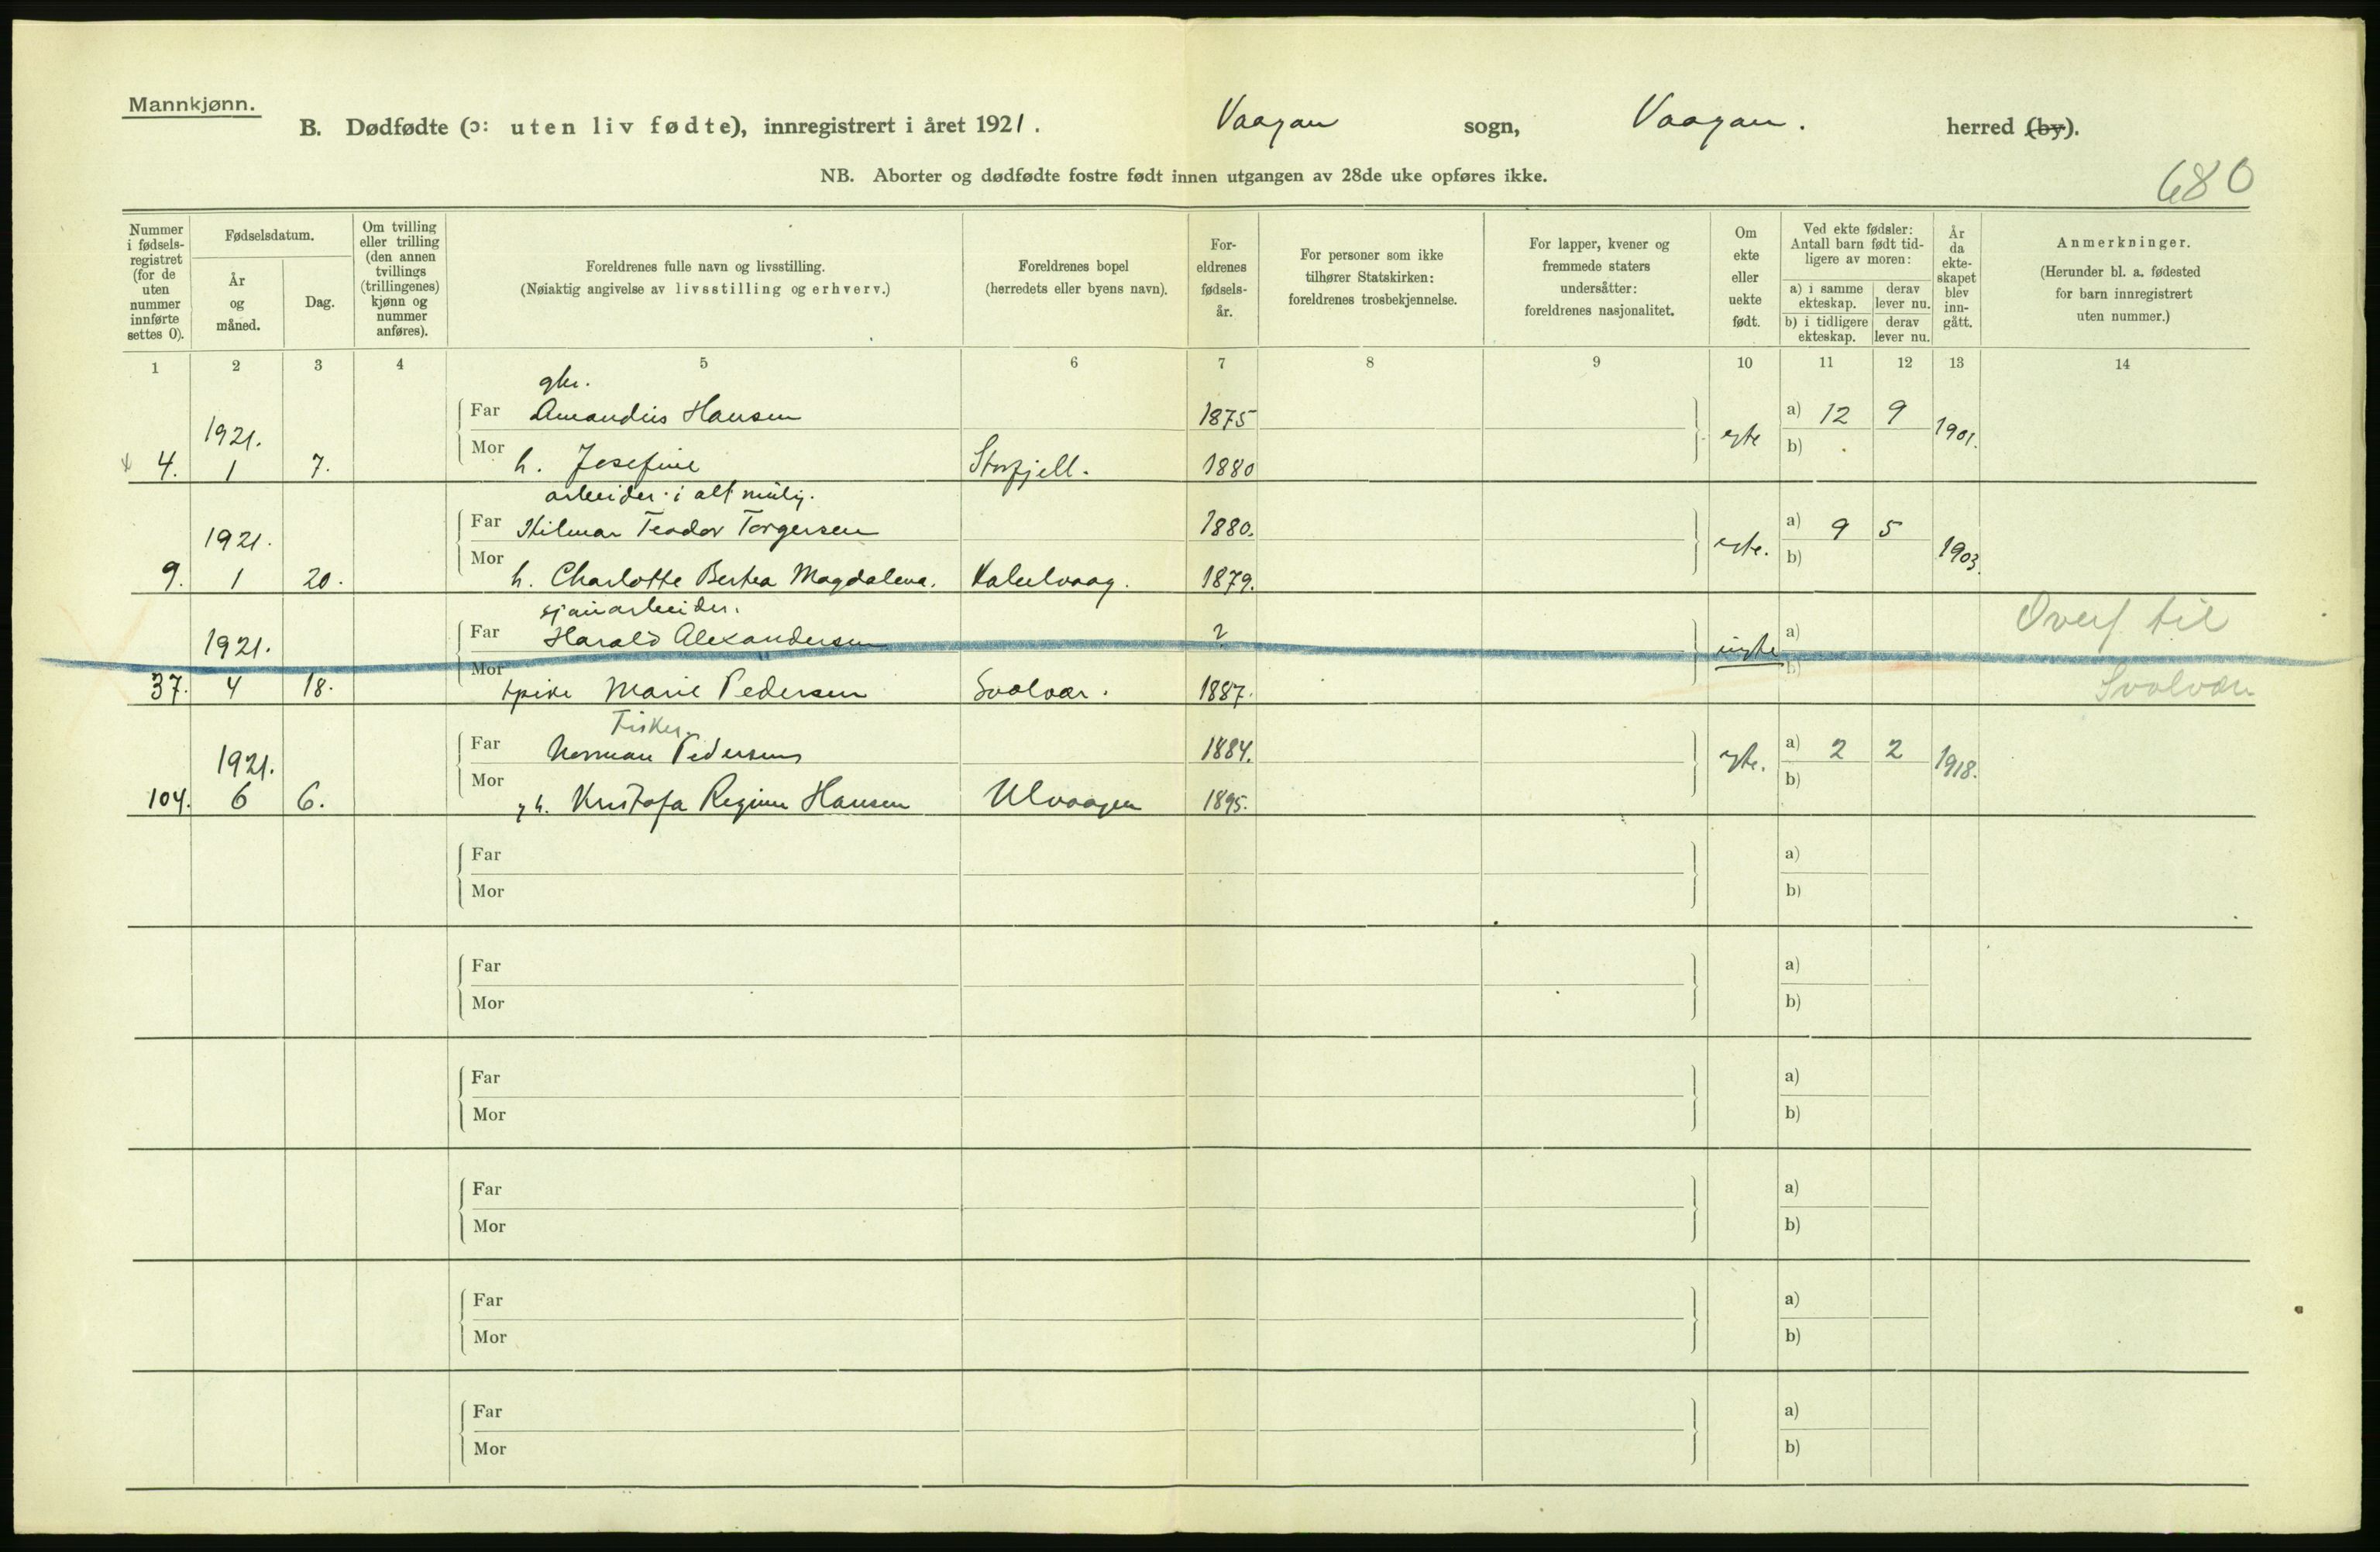 Mannkjønn.
B. Dødfødte (ɔ: uten liv fødte), innregistrert i året 1921. Vaagan sogn, Vaagan. herred (by).
NB. Aborter og dødfødte fostre født innen utgangen av 28de uke opføres ikke.
680
Nummer i fødsels- registret (for de uten nummer innførte settes 0).
Fødselsdatum.
År og måned.
Dag.
Om tvilling eller trilling (den annen tvillings (trillingenes) kjønn og nummer anføres).
Foreldrenes fulle navn og livsstilling.
(Nøiaktig angivelse av livsstilling og erhverv.)
Foreldrenes bopel
(herredets eller byens navn).
For- eldrenes fødsels- år.
For personer som ikke tilhører Statskirken: foreldrenes trosbekjennelse.
For lapper, kvener og fremmede staters undersåtter: foreldrenes nasjonalitet.
Om ekte eller uekte født.
Ved ekte fødsler: Antall barn født tid- ligere av moren:
a) i samme ekteskap. derav lever nu.
b) i tidligere ekteskap. derav lever nu.
År da ekte- skapet blev inn- gått.
Anmerkninger.
(Herunder bl. a. fødested for barn innregistrert uten nummer.)
1 2 3 4 5 6 7 8 9 10 11 12 13 14
gbr.
Far Amandus Hansen 1875 a) 12 9
1921. egte 1901.
4. 1 7. Mor h. Josefine Storfjell. 1880 b)
arbeider i alt mulig.
Far Hilmar Teodor Torgersen 1880. a) 9 5
1921. egte. 1903.
9. 1 20. Mor h. Charlotte Bertea Magdalena. Kalelvaag. 1879. b)
sjauarbeider.
Far Harald Alexandersen ? a) Overf til
1921. uegte
37. 4 18. Mor Marie Pedersen Svolvær. 1887. b) Svolvær
Fisker.
Far Norman Pedersen 1884. a) 2 2
1921. egte. 1918.
104. 6 6. Mor h. Kristofa Regine Hansen Ulvaagen 1895. b)
Far a)
Mor b)
Far a)
Mor b)
Far a)
Mor b)
Far a)
Mor b)
Far a)
Mor b)
Far a)
Mor b)